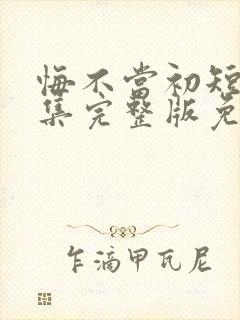 悔不当初短
集完整版免
乍滴甲瓦尼